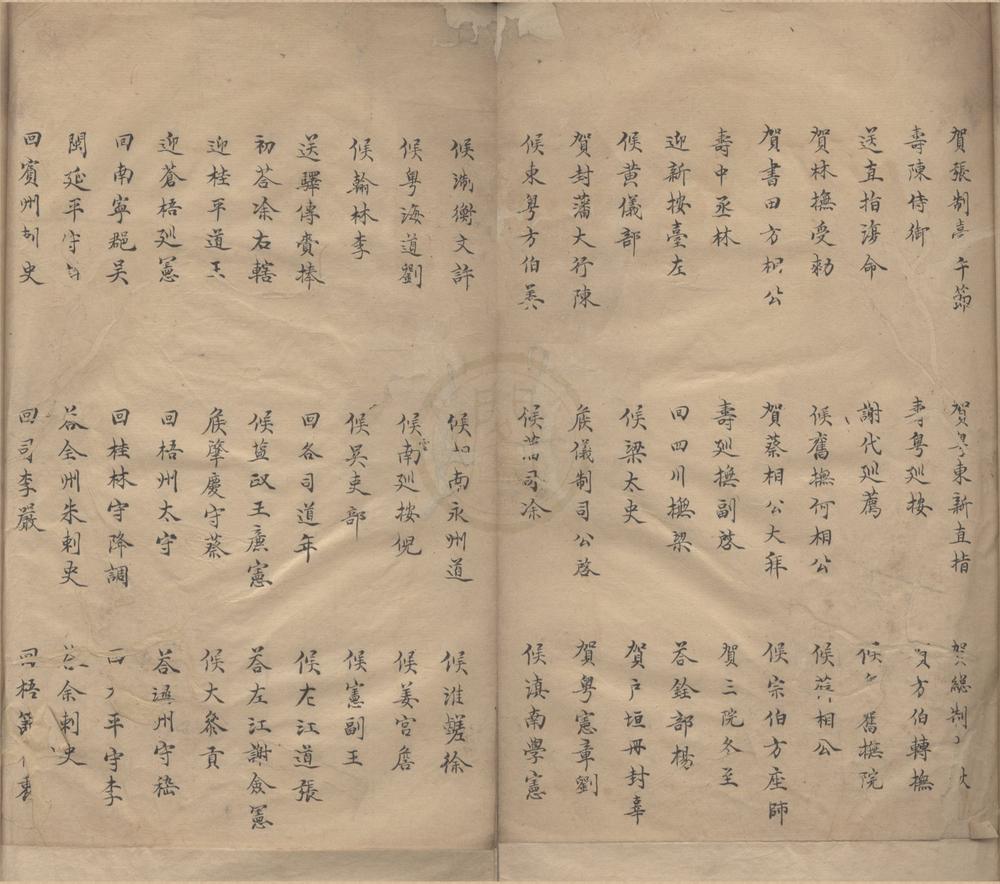 賀張制喜午節
賀粵東新直指
賀總制
壽陳侍御
壽粵巡按
方伯轉撫
送直指海命
謝代巡薦
候舊撫院
賀林撫受勅
候舊撫何相公
候相公
賀書田方相公
賀蔡相公大拜
候宗伯方座師
壽中丞林
壽廵撫副啓
賀三院冬至
迎新按臺左
回四川撫梁
荅銓部楊
候黄儀部
候梁太史
賀戸垣冊封辜
賀封藩大行陳
候儀制司公啓
賀粵憲章劉
候東粵方伯姜
候司凃
候滇南學憲
候衡文許
候南永州道
候淮鹺徐
候粵海道劉
候雲南廵按倪
候姜宫詹
候翰林李
候吳吏部
候憲副王
送驛傳賫捧
回各司道年
候左江道張
初荅凃右轄
候鹽政王亷憲
荅左江謝僉憲
迎桂平道王
候肇慶守蔡
候大叅貢
迎蒼梧廵憲
回梧州太守
荅連州守嵇
回南寧郡吴
回桂林守降調
平守李
閩延平守
荅全州朱刺史
荅余刺史
回賓州刺史
回司李嚴
回梧